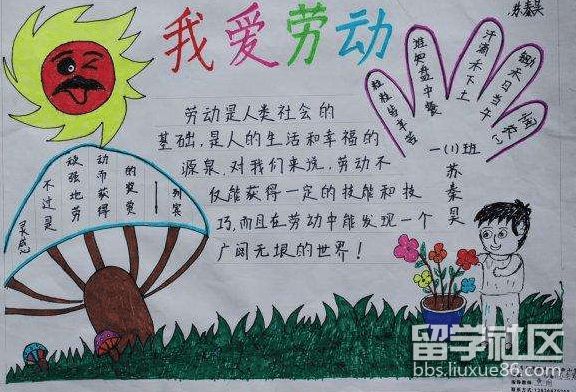 苏秦昊
我爱劳动
劳动是人类社会的
基础,是人的生活和幸福的
源泉,对我们来说,劳动不
仅能获得一定的技能和技
巧,而且在劳动中能发现一个
广阔无垠的世界!
锄禾日当午
汗滴禾下土
谁知盘中餐
粒粒皆辛苦
一(1)班
苏秦昊
灵感
不过是
顽强地劳
动而获得
的奖赏
——列宾
留学社区
bbs.liuxue86.com